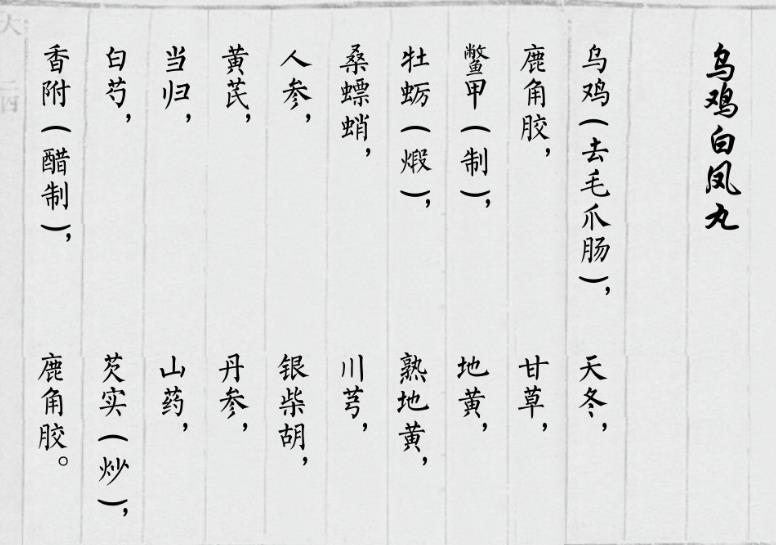 乌鸡白凤丸
乌鸡(去毛爪肠),
鹿角胶,
鳖甲(制),
牡蛎(煅),
桑螵蛸,
人参,
黄芪,
当归,
白芍,
香附(醋制),
天冬,
甘草,
地黄,
熟地黄,
川芎,
银柴胡,
丹参,
山药,
芡实(炒),
鹿角胶。